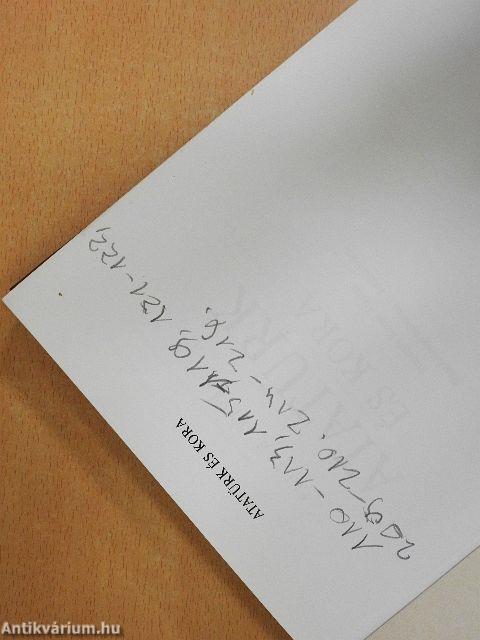 ATATÜRK ÉS KORA
110-113, 115-119, 121-122,
209-210. 214-216.
ATATÜRK
ÉS KORA
Antikvárium.hu